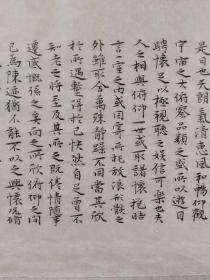 是日也天朗氣清惠風和暢仰觀
宇宙之大俯察品類之盛所以遊目
騁懷足以極視聽之娛信可樂也夫
人之相與俯仰一世或取諸懷抱晤
言一室之內或因寄所托放浪形骸之
外雖取舍萬殊靜躁不同當其欣
於所遇暫得於己快然自足曾不
知老之將至及其所之既倦情隨事
遷感慨係之矣向之所欣俯仰之間
已為陳迹猶不能不以之興懷況脩